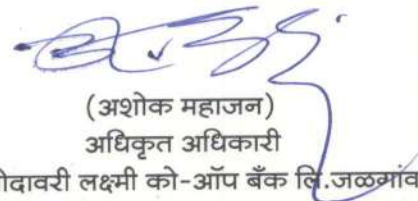 (अशोक महाजन)
अधिकृत अधिकारी
लक्ष्मी को-ऑप बँक लि.जळगांव